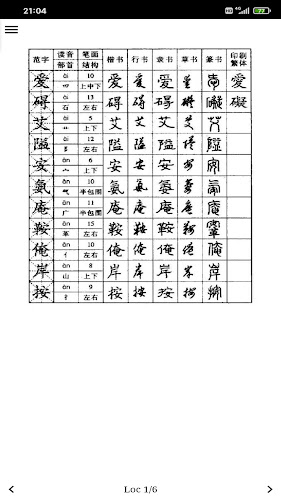 21:04
77
范字 读音 笔画 楷书 行书 隶书 草书 篆书 印刷
部首 结构 繁体
爱 ài 10 爱 爱 爱 爱 愛
爫 上中下
碍 ài 13 碍 碍 碍 碍 礙
石 左右
艾 ài 5 艾 艾 艾 艾
艹 上下
隘 ài 12 隘 隘 隘 隘
阝 左右
安 ān 6 安 安 安 安
宀 上下
氨 ān 10 氨 氨 氨 氨
气 半包围
庵 ān 11 庵 庵 庵 庵
广 半包围
鞍 ān 15 鞍 鞍 鞍 鞍
革 左右
俺 ǎn 10 俺 俺 俺 俺
亻 左右
岸 àn 8 岸 岸 岸 岸
山 上下
按 àn 9 按 按 按 按
扌 左右
Loc 1/6